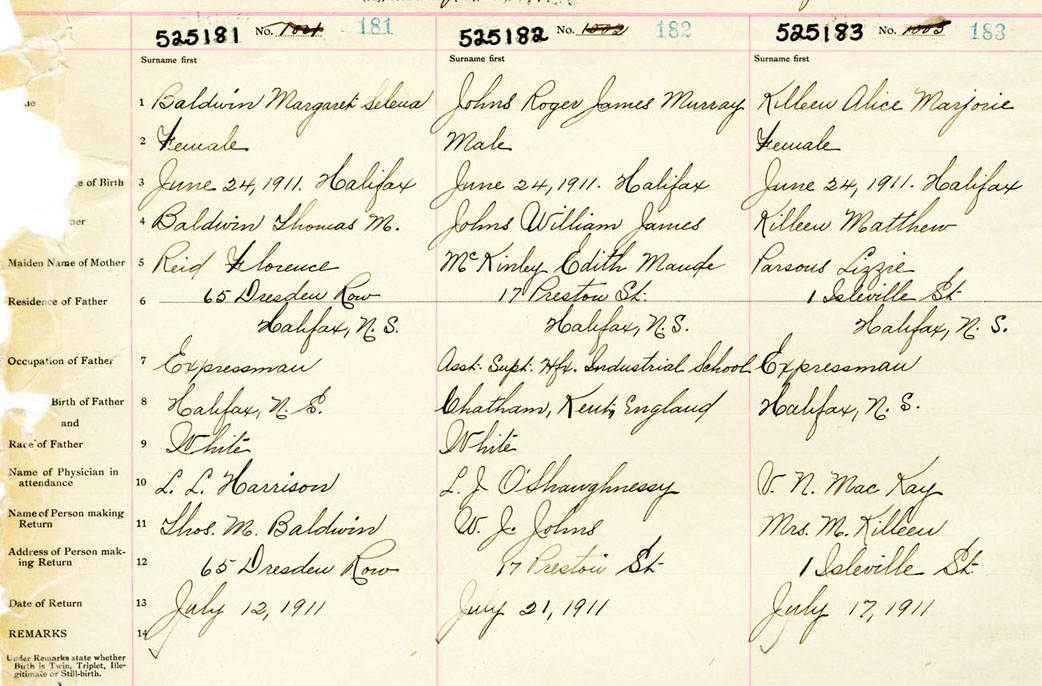 525181 No. 1001 181 525182 No. 1002 182 525183 No. 1003 183
Surname first Surname first Surname first
1 Baldwin Margaret Selena Johns Roger James Murray Killeen Alice Marjorie
2 Female Male Female
e of Birth 3 June 24, 1911. Halifax June 24, 1911. Halifax June 24, 1911. Halifax
4 Baldwin Thomas M. Johns William James Killeen Matthew
Maiden Name of Mother 5 Reid Florence McKinley Edith Maude Parsons Lizzie
Residence of Father 6 65 Dresden Row 17 Preston St. 1 Isleville St.
Halifax, N.S. Halifax, N.S. Halifax, N.S.
Occupation of Father 7 Expressman Asst. Supt. Hfx. Industrial School Expressman
Birth of Father 8 Halifax, N.S. Chatham, Kent, England Halifax, N.S.
and
Race of Father 9 White White
Name of Physician in
attendance 10 L. L. Harrison L. J O'Shaughnessy V. N. MacKay
Name of Person making
Return 11 Thos. M. Baldwin W. J. Johns Mrs. M. Killeen
Address of Person mak-
ing Return 12 65 Dresden Row 17 Preston St. 1 Isleville St.
Date of Return 13 July 12, 1911 July 21, 1911 July 17, 1911
REMARKS 14
Under Remarks state whether
Birth is Twin, Triplet, Ille-
gitimate or Still-birth.